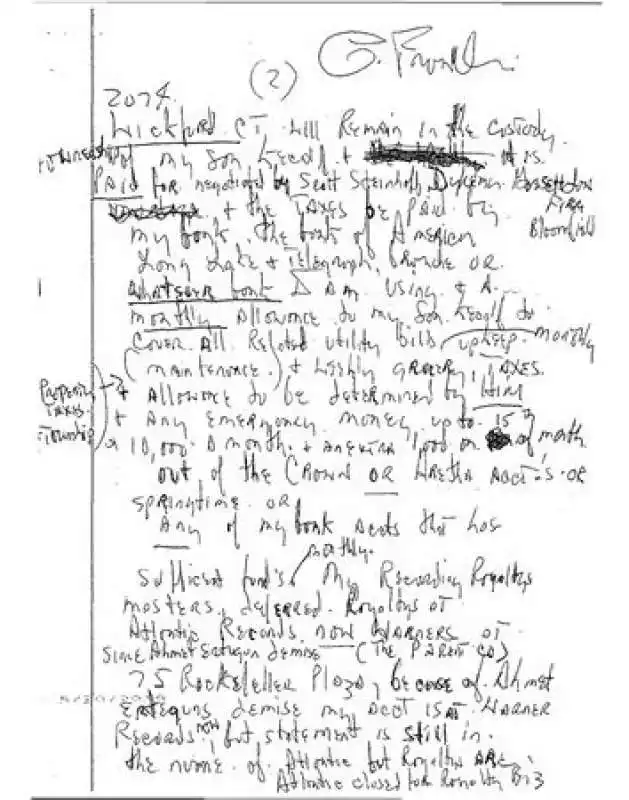 (2)
2074
Wickford CT. Will Remain in the custody
of my Son Kecalf +
it is
Paid for negotiated by Scott
+ the Taxes be Paid by
Firm
Bloomfield
my bonk, the bonk of America
Long Lake + Telegraph, Branch OR.
Whatsever bonk I Am Using + A
monthly Allowance to my Son Kecalf to
Cover All Related utility bills upkeep. monthly
(maintenance.) + Weekly grocery, TAXES.
Property
Taxes.
Township
+ Allowance to be determined by Him
+ Any Emergency money up to 15
10,000. A month. + An extra 1,000 on of month
out of the Crown OR Aretha Acct's. OR
Springtime OR
Any of my bonk Accts that has
monthly.
Sufficient fund's My Recording Royaltys
masters, deferred. Royaltys at
Atlantic Records, now Warners at
Since Ahmet Ertegun demise (The Parent Co)
75 Rockefeller Plaza, because of Ahmet
Erteguns demise my Acct is at Warner
Records now, but statement is still in
the name of Atlantic but Royaltys ARE
Atlantic closed for Royalty